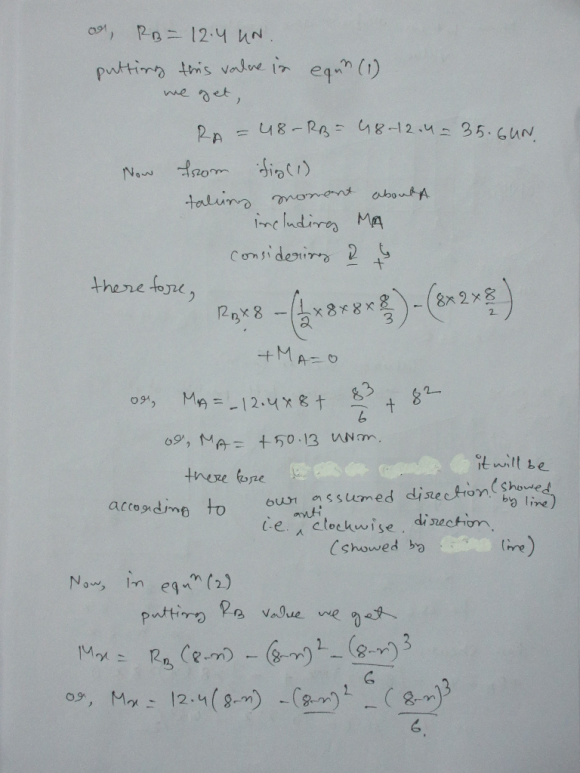 or, RB = 12.4 kN.
putting this value in equnⁿ (1)
we get,
RA = 48 - RB = 48 - 12.4 = 35.6 kN.
Now from fig(1)
taking moment about A
including MA
considering
therefore,
RB×8 - (1/2 ×8×8×8/3) - (8×2×8/2)
+MA=0
or, MA = -12.4×8 + 8³/6 + 8²
or, MA = +50.13 kNm.
therefore it will be
according to our assumed direction (showed by line)
i.e. anti clockwise. direction.
(showed by line)
Now, in equnⁿ (2)
putting RB value we get
Mx = RB (8-x) - (8-x)² - (8-x)³/6
or, Mx = 12.4(8-x) - (8-x)² - (8-x)³/6.